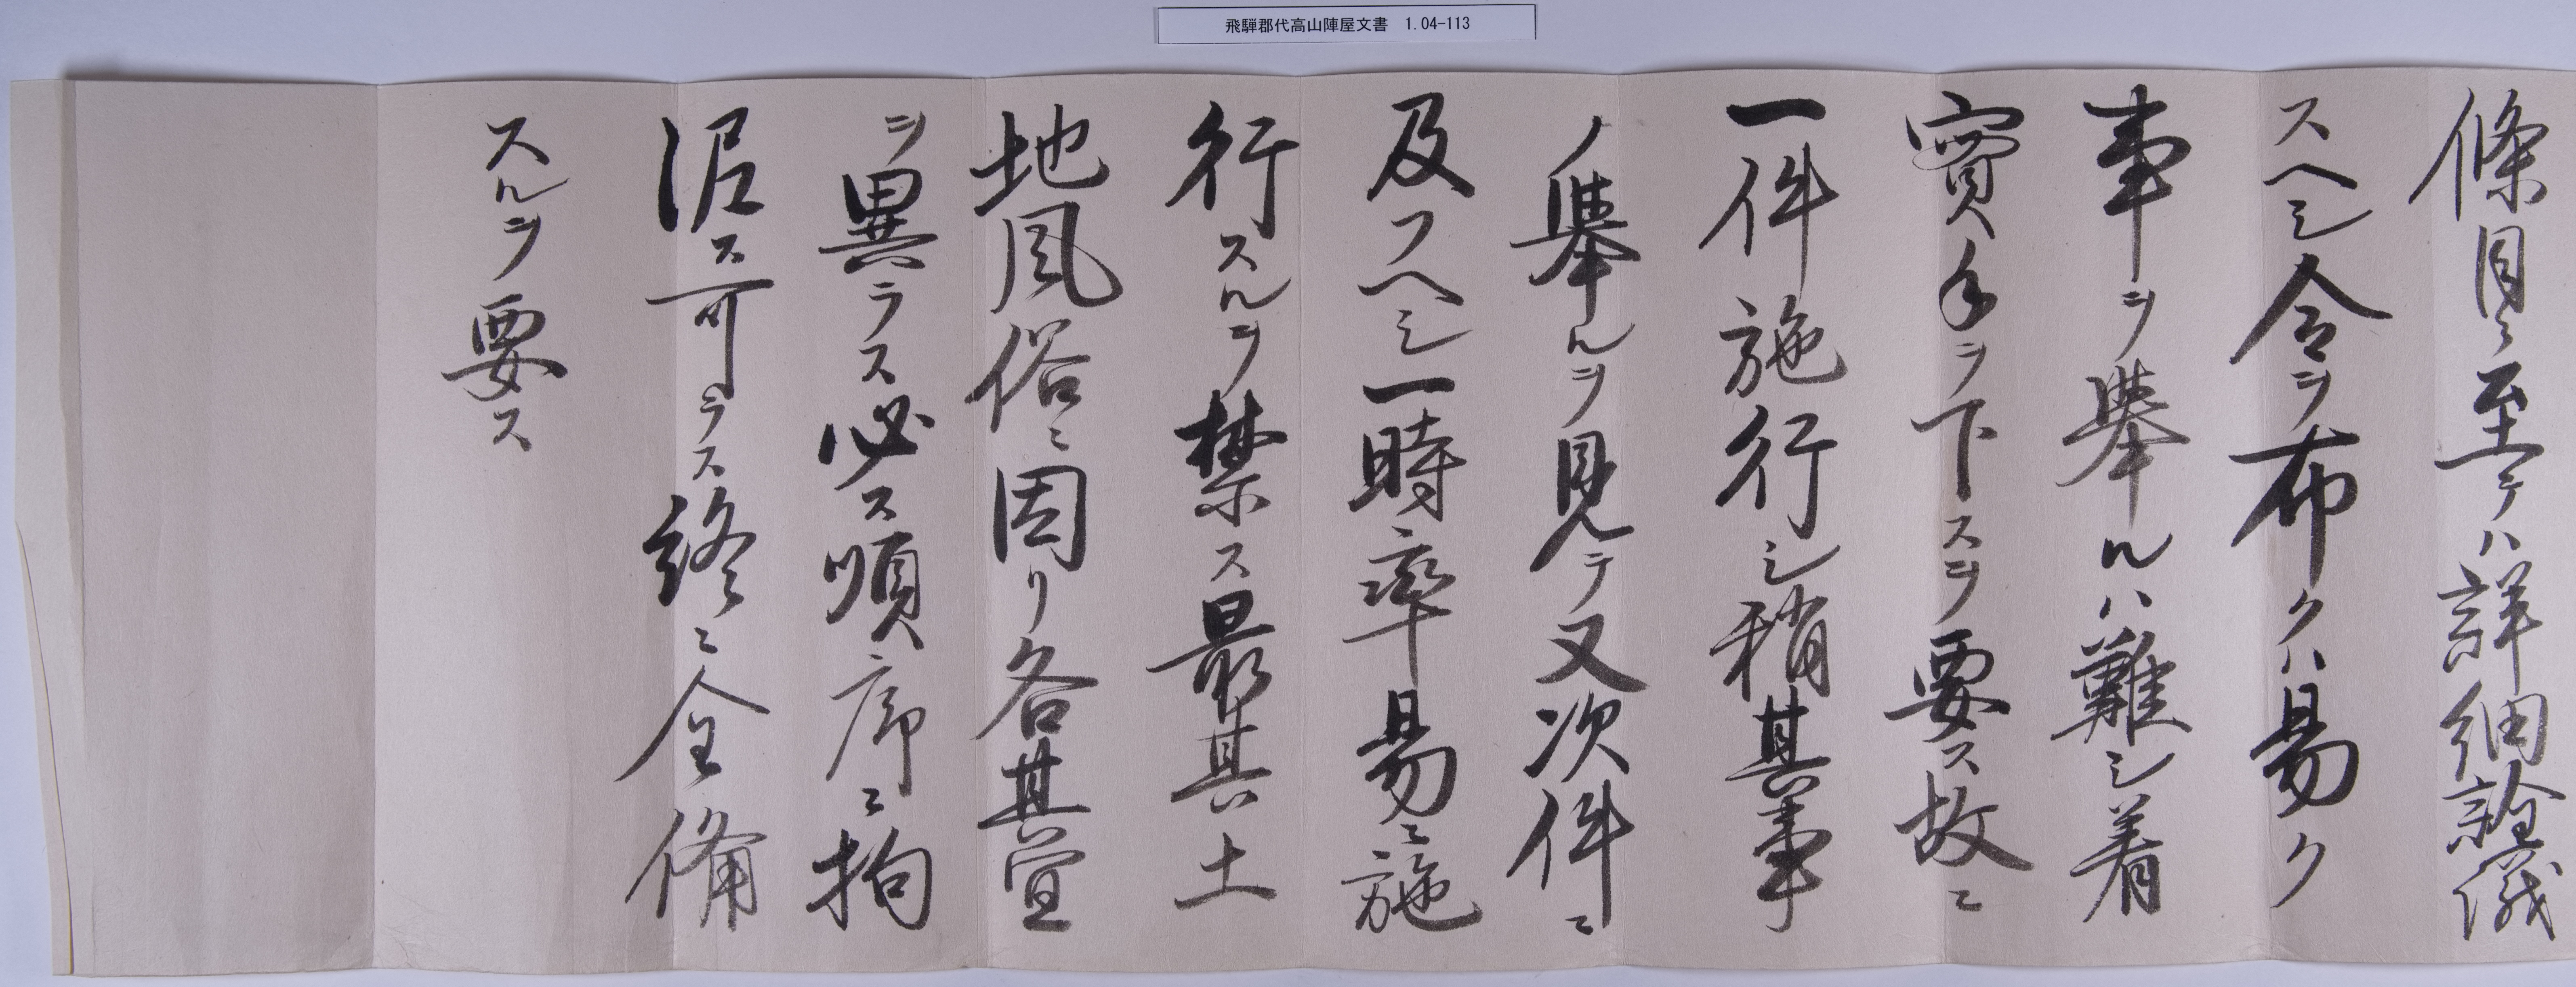 飛騨郡代高山陣屋文書 1.04-113
條目ニ至テハ詳細詮議
スヘシ令ヲ布クハ易ク
事ヲ擧ルハ難シ着
實手ヲ下スヲ要ス故ニ
一件施行シ稍其事
ノ擧ルヲ見テ又次件ニ
及フヘシ一時率易ニ施
行スルヲ禁ス最其土
地風俗ニ因リ各其宜
ヲ異ラス必ス順序ニ拘
泥ス可ラス終ニ全備
スルヲ要ス